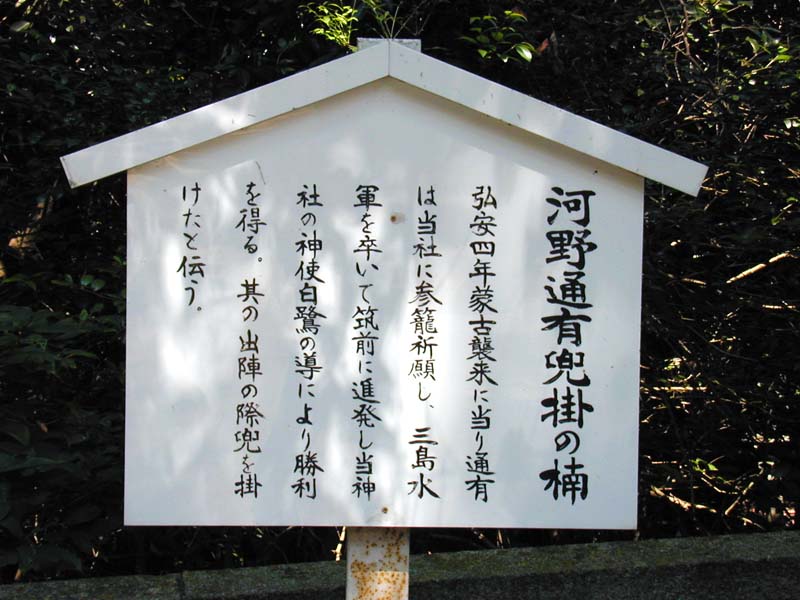 河野通有兜掛の楠
弘安四年蒙古襲来に当り通有
は当社に参籠祈願し、三島水
軍を卒いて筑前に進発し当神
社の神使白鷺の導により勝利
を得る。其の出陣の際兜を掛
けたと伝う。